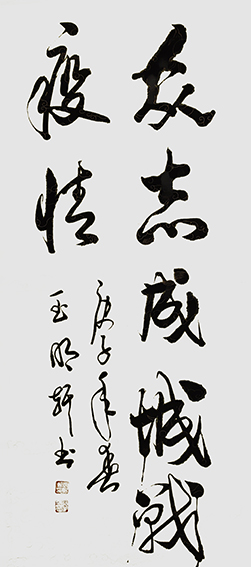 众志成城战
疫情
庚子年春
王明轩书